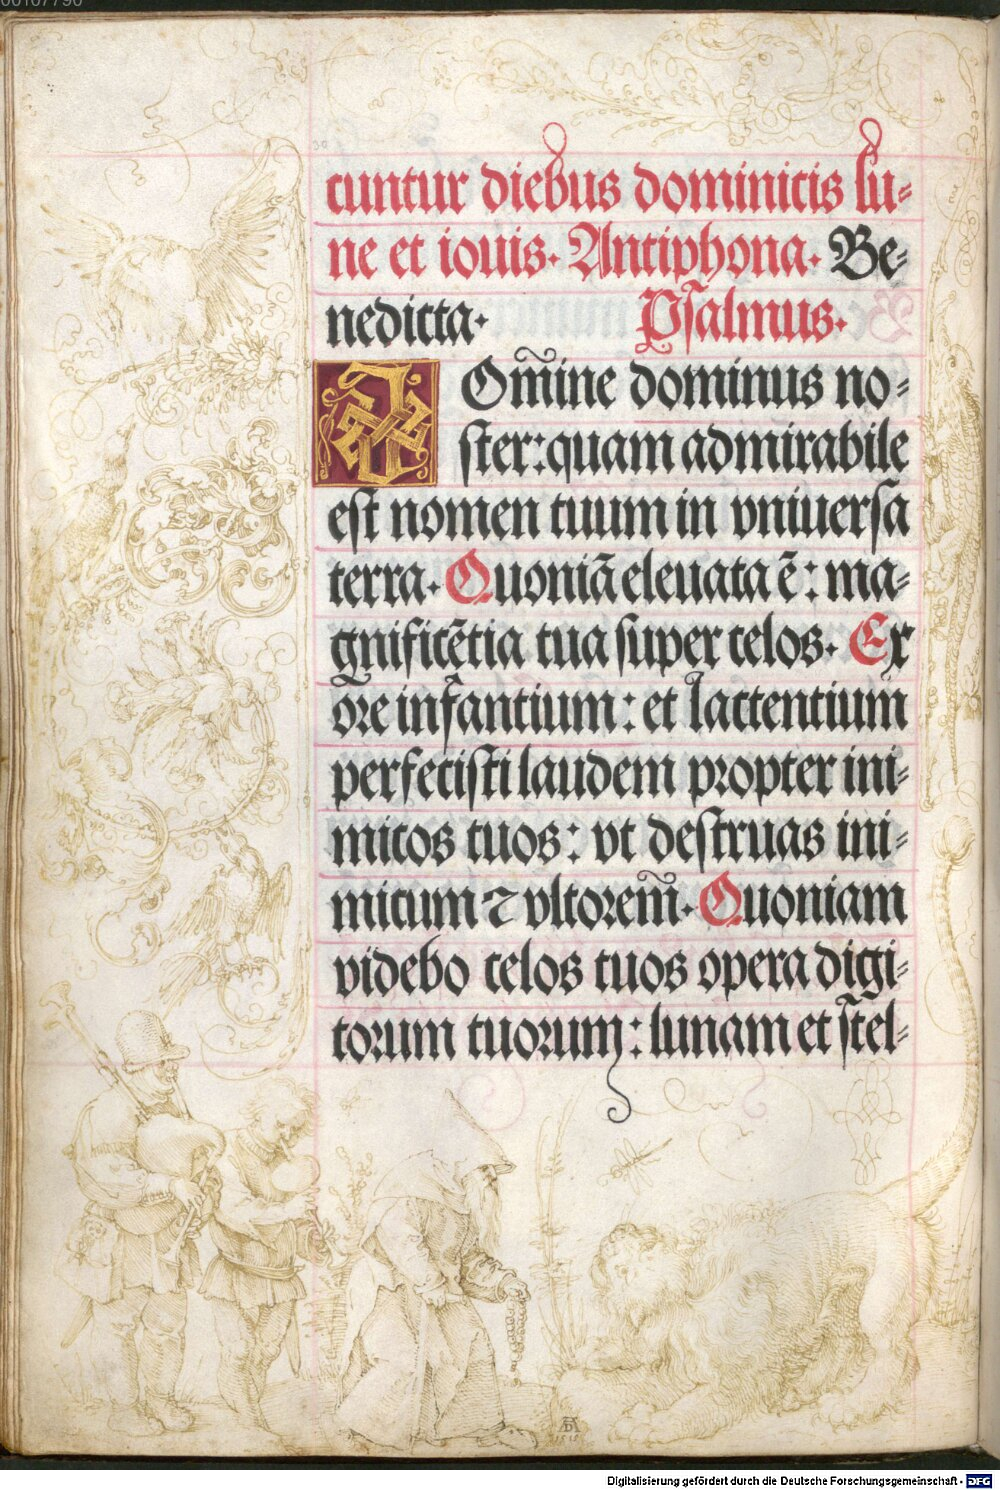 00107790
30
cuntur diebus dominicis lu⸗
ne et iouis. Antiphona. Be⸗
nedicta. Psalmus.
DOm̃ine dominus no⸗
ster: quam admirabile
est nomen tuum in vniuersa
terra. Quoniã eleuata ẽ: ma⸗
gnificẽtia tua super celos. Ex
ore infantium: et lactentium
perfecisti laudem propter ini⸗
micos tuos: vt destruas ini⸗
micum ⁊ vltorem̃. Quoniam
videbo celos tuos opera digi⸗
torum tuorum: lunam et stel⸗
AD
1515
Digitalisierung gefördert durch die Deutsche Forschungsgemeinschaft - DFG